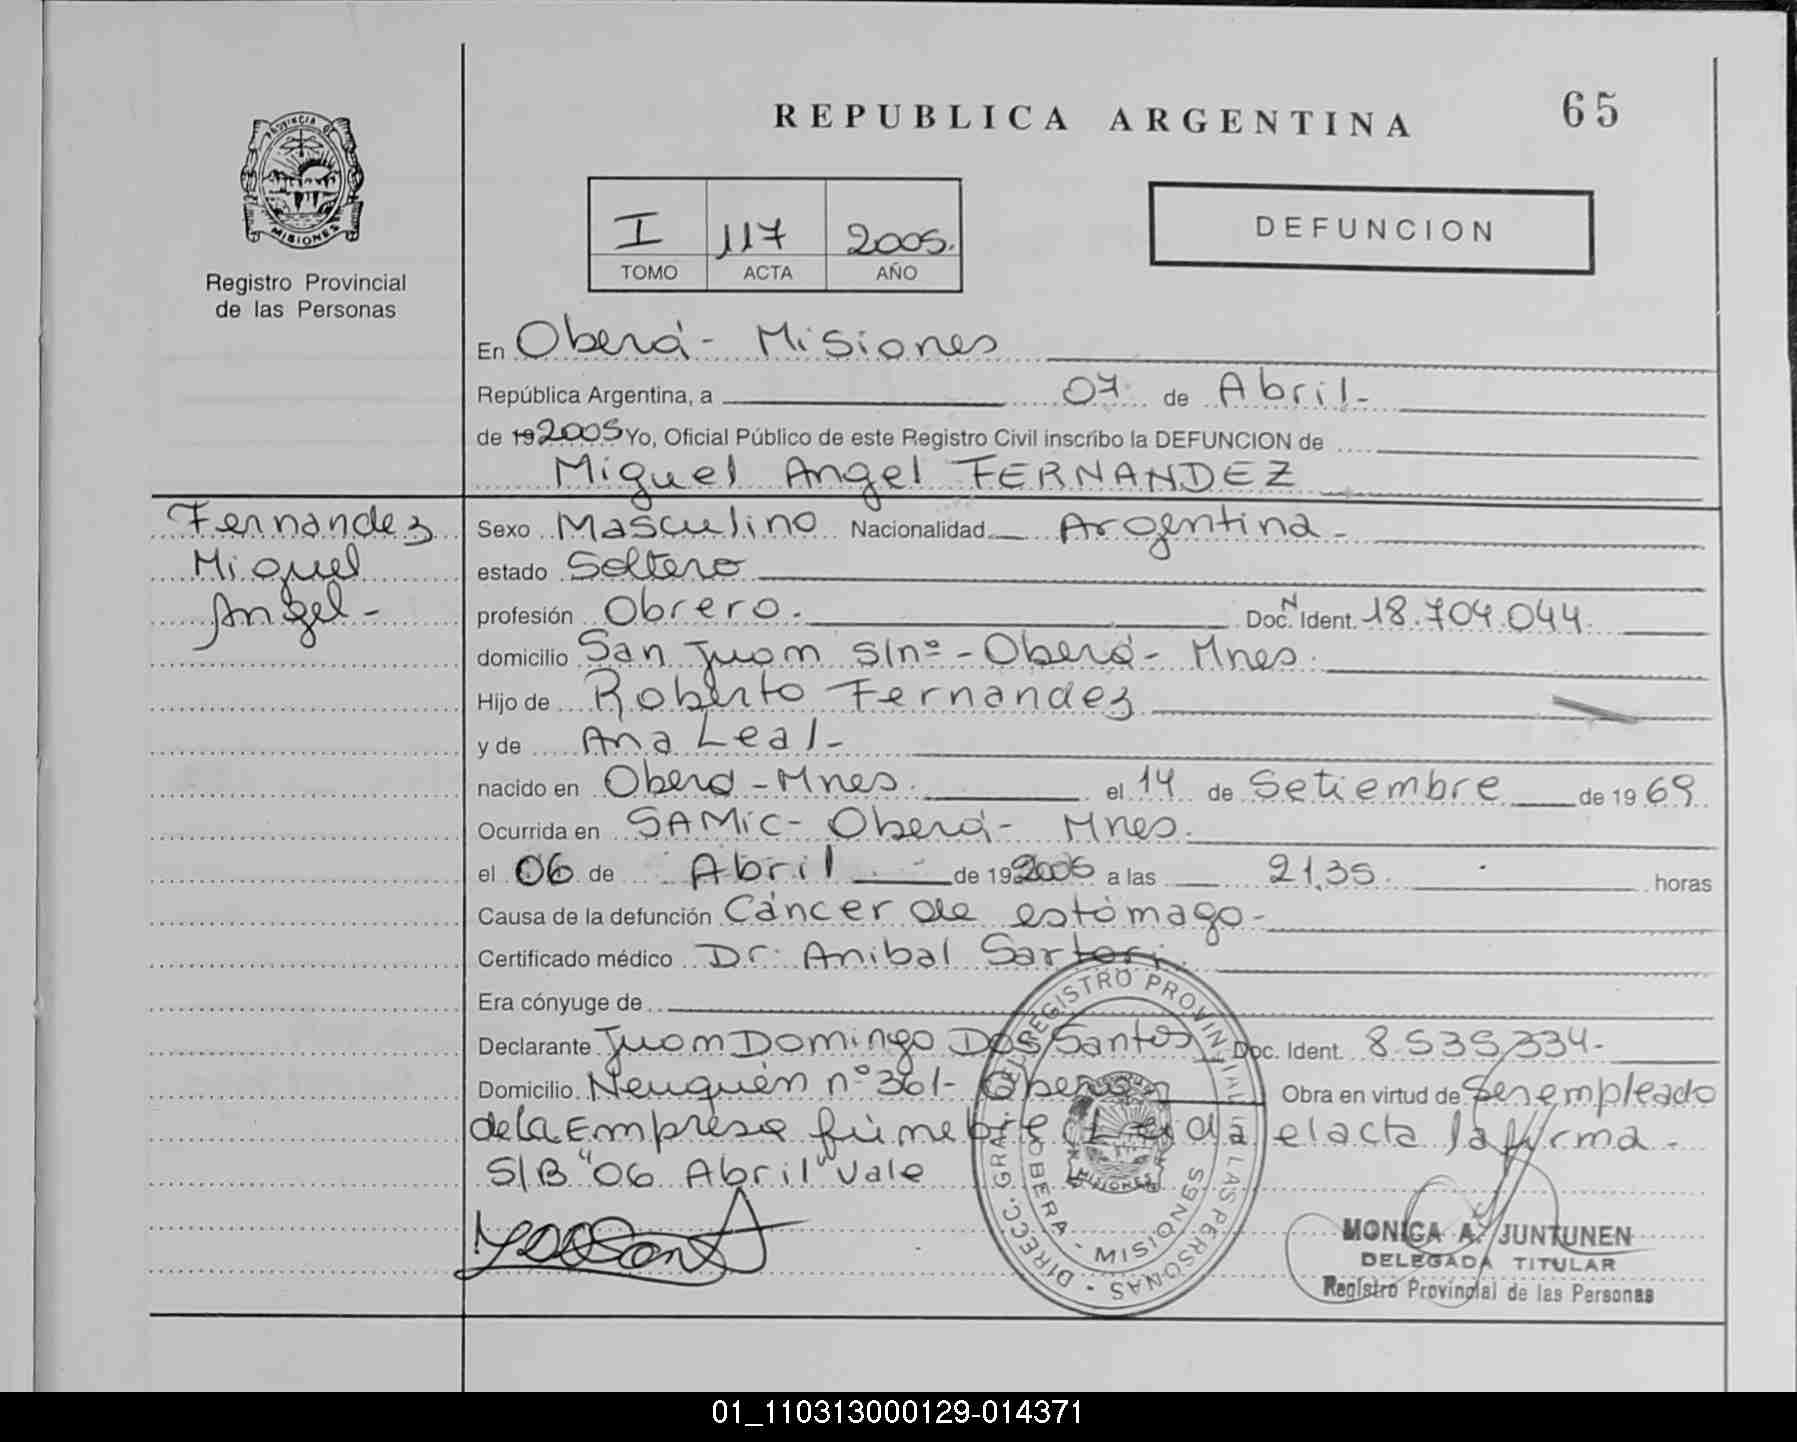 REPUBLICA ARGENTINA
65
PROVINCIA DE
MISIONES
Registro Provincial
de las Personas
I 117 2005.
TOMO ACTA AÑO
DEFUNCION
En Oberá - Misiones
República Argentina, a 07 de Abril -
de 19 2005 Yo, Oficial Público de este Registro Civil inscribo la DEFUNCION de
Miguel Angel FERNANDEZ
Fernandez
Miguel
Angel -
Sexo Masculino Nacionalidad Argentina -
estado Soltero
profesión Obrero. Doc. N Ident. 18.704.044.
domicilio San Juan s/nº - Oberá - Mnes.
Hijo de Roberto Fernandez
y de Ana Leal -
nacido en Oberá - Mnes. el 14 de Setiembre de 19 69
Ocurrida en SAMIC - Oberá - Mnes.
el 06 de Abril de 19 2005 a las 21,35 horas
Causa de la defunción Cáncer de estómago -
Certificado médico Dr. Anibal Sartori
Era cónyuge de
Declarante Juan Domingo Dos Santos Doc. Ident. 8.535.334 -
Domicilio Neuquén nº 361 - Oberá Obra en virtud de Ser empleado
de la Empresa fúnebre Leida el acta la firma -
S/B "06 Abril" Vale
DIRECC. GRAL. DEL REGISTRO PROVINCIAL DE LAS PERSONAS
OBERA - MISIONES
MISIONES
MONICA A. JUNTUNEN
DELEGADA TITULAR
Registro Provincial de las Personas
01_110313000129-014371